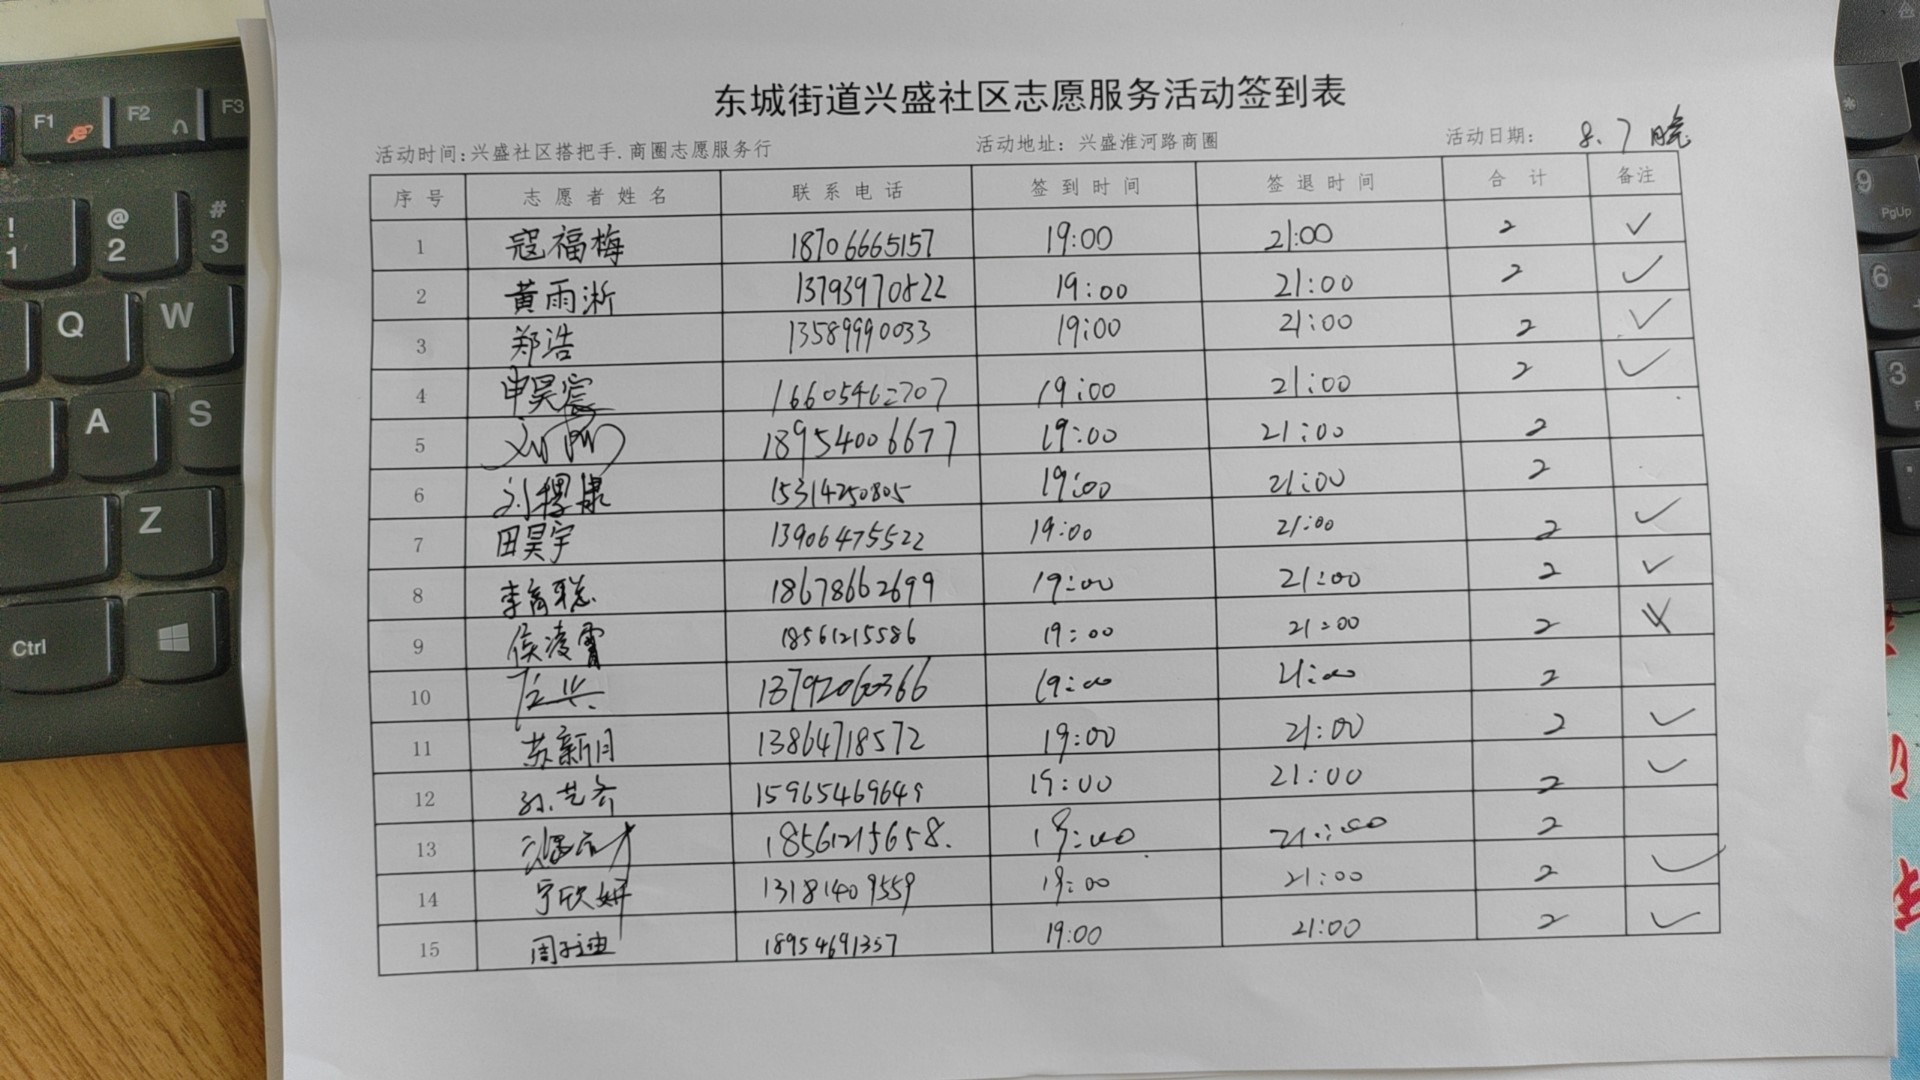 东城街道兴盛社区志愿服务活动签到表
活动时间:兴盛社区搭把手.商圈志愿服务行 活动地址：兴盛淮河路商圈 活动日期： 8.7晚
序号 志愿者姓名 联系电话 签到时间 签退时间 合计 备注
1 寇福梅 18706665157 19:00 21:00 2 ✓
2 黄雨淅 13793970822 19:00 21:00 2 ✓
3 郑浩 13589990033 19:00 21:00 2 ✓
4 申昊宸 16605462707 19:00 21:00 2 ✓
5 18954006677 19:00 21:00 2
6 15314250805 19:00 21:00 2
7 田昊宇 13906475522 19:00 21:00 2 ✓
8 18678662699 19:00 21:00 2 ✓
9 侯凌霄 18561215586 19:00 21:00 2
10 13792060366 19:00 21:00 2
11 苏新月 13864718572 19:00 21:00 2 ✓
12 孙艺齐 15965469649 19:00 21:00 2 ✓
13 18561215658. 19:00 21:00 2
14 宁欣妍 13181409559 19:00 21:00 2 ✓
15 周子迪 18954691357 19:00 21:00 2 ✓
F1 F2 F3
! 1 @ 2 # 3
Q W
A S
Z
Ctrl
*
9 PgUp
6
3